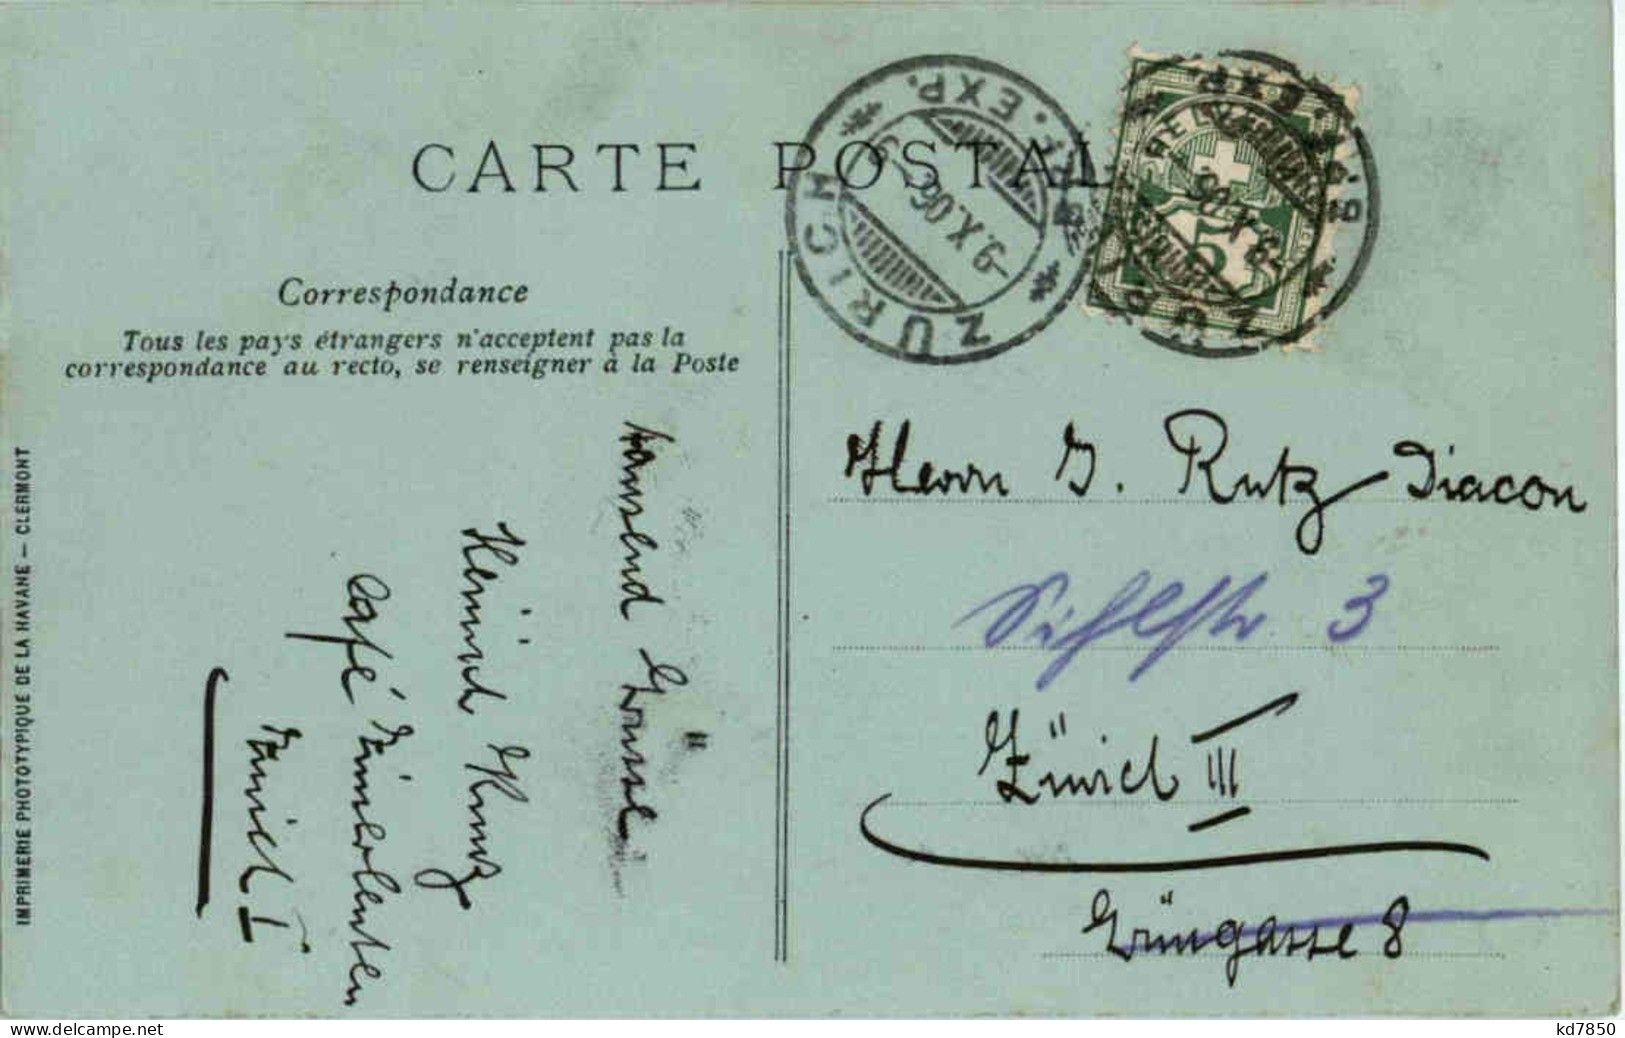 CARTE POSTAL
Correspondance
Tous les pays étrangers n'acceptent pas la
correspondance au recto, se renseigner à la Poste
IMPRIMERIE PHOTOTYPIQUE DE LA HAVANE — CLERMONT
ZÜRICH BRF. EXP.
-9.X.06.-5
HELVETIA
5
ZÜRICH BRF. EXP.
Herrn J. Rutz Diacon
Sihlstr. 3
Zürich III
Grüngasse 8
tausend Grüsse
Heinrich Kunz
Café
Zürich I
kd7850